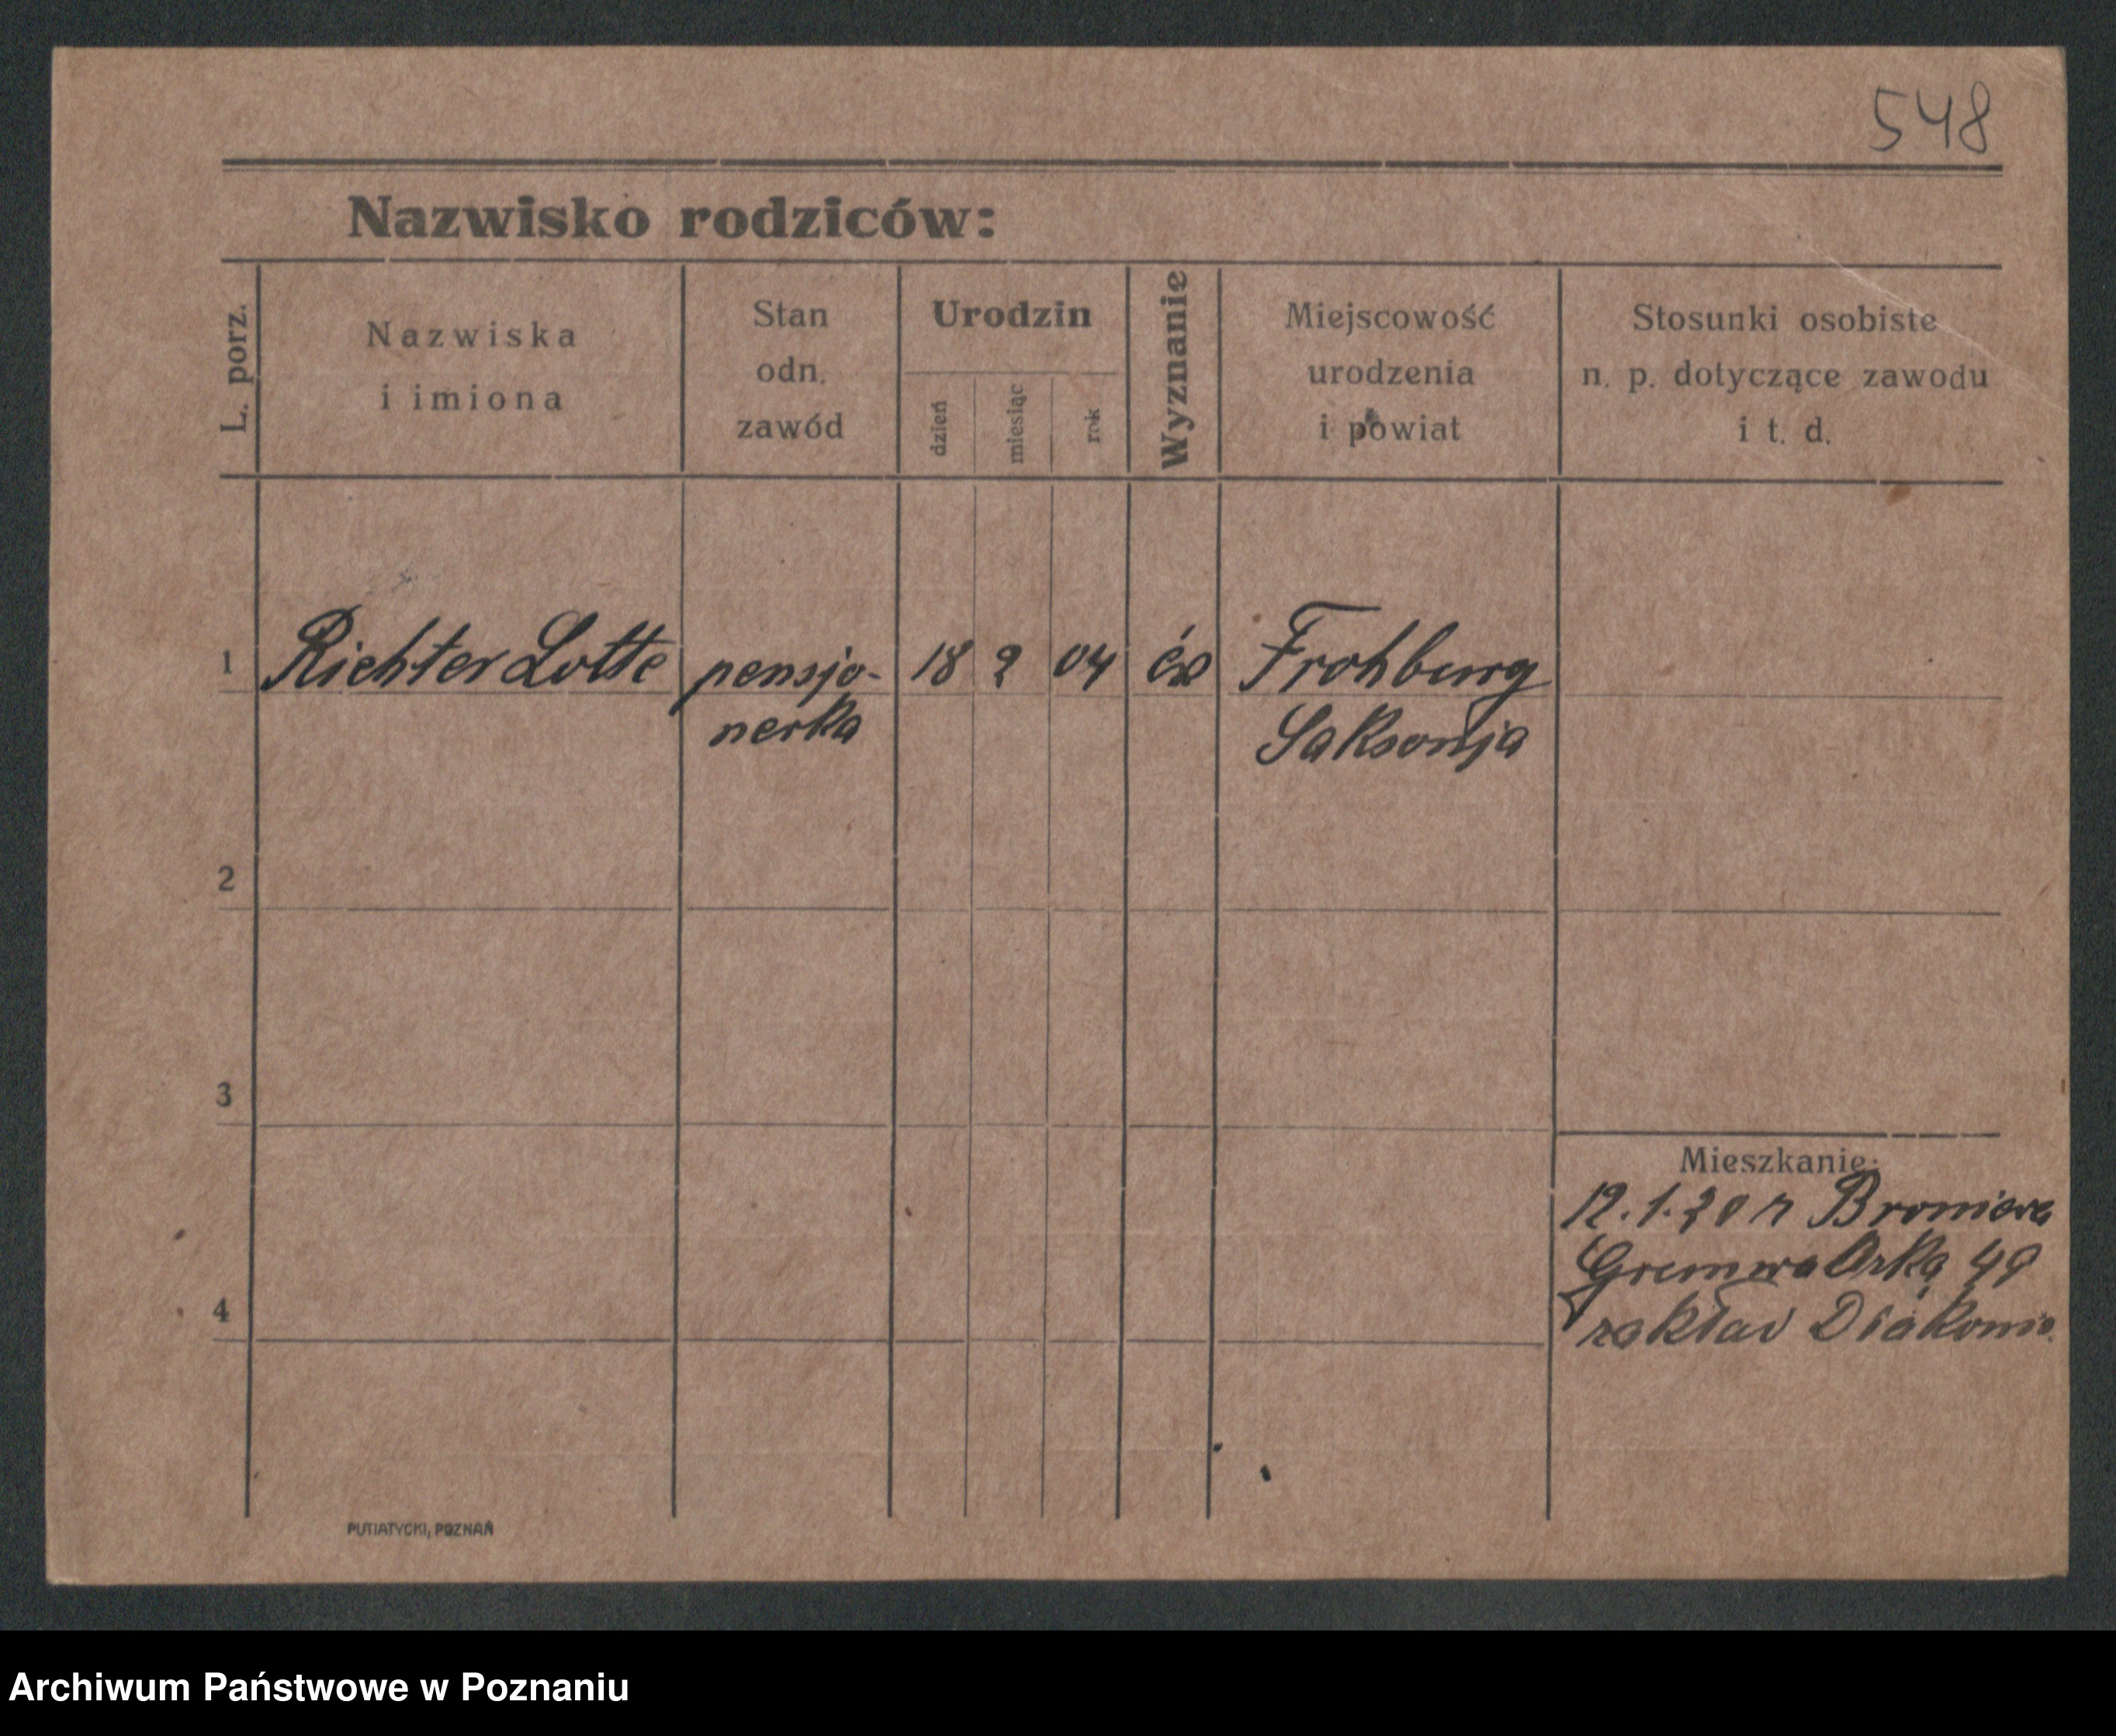 548
Nazwisko rodziców:
L. porz.
Nazwiska
i imiona
Stan
odn.
zawód
Urodzin
dzień
miesiąc
rok
Wyznanie
Miejscowość
urodzenia
i powiat
Stosunki osobiste
n. p. dotyczące zawodu
i t. d.
1 Richter Lotte pensjo- 18 2 04 Frohburg
nerka Saksonja
2
3
4
Mieszkanie:
12.1.
49
zakład
PUTIATYCKI, POZNAŃ
Archiwum Państwowe w Poznaniu